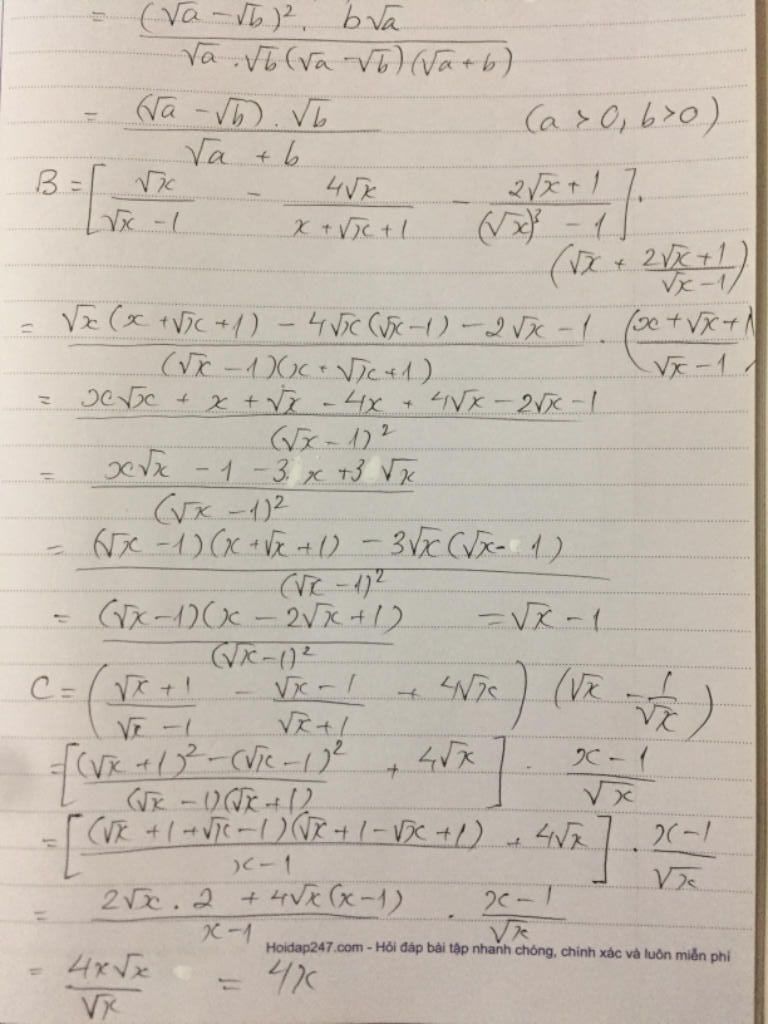 = (√a - √b)² . b√a / √a . √b (√a - √b)(√a + b)
= (√a - √b) . √b / √a + b (a > 0, b > 0)
B = [ √x / √x - 1 - 4√x / x + √x + 1 - 2√x + 1 / (√x)³ - 1 ] .
(√x + 2√x + 1 / √x - 1)
= √x (x + √x + 1) - 4√x (√x - 1) - 2√x - 1 / (√x - 1)(x + √x + 1) . (x + √x + 1 / √x - 1)
= x√x + x + √x - 4x + 4√x - 2√x - 1 / (√x - 1)²
= x√x - 1 - 3x + 3√x / (√x - 1)²
= (√x - 1)(x + √x + 1) - 3√x (√x - 1) / (√x - 1)²
= (√x - 1)(x - 2√x + 1) / (√x - 1)² = √x - 1
C = ( √x + 1 / √x - 1 - √x - 1 / √x + 1 + 4√x ) (√x - 1 / √x)
= [ (√x + 1)² - (√x - 1)² / (√x - 1)(√x + 1) + 4√x ] . x - 1 / √x
= [ (√x + 1 + √x - 1)(√x + 1 - √x + 1) / x - 1 + 4√x ] . x - 1 / √x
= 2√x . 2 + 4√x (x - 1) / x - 1 . x - 1 / √x
Hoidap247.com - Hỏi đáp bài tập nhanh chóng, chính xác và luôn miễn phí
= 4x√x / √x = 4x